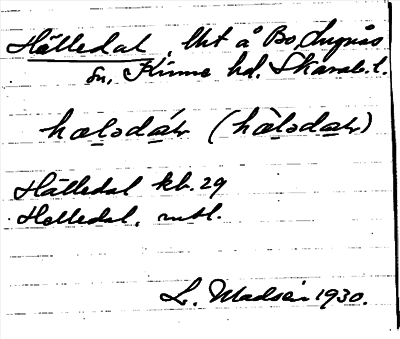 Hälledal, lht å Bo, Lugnås
sn, Kinne hd. Skarab. l.
hæ̱lǝda̱h (hæ̀lǝda̱h)
Hälledal kb. 29
Helledal. mtl.
L. Madsén 1930.